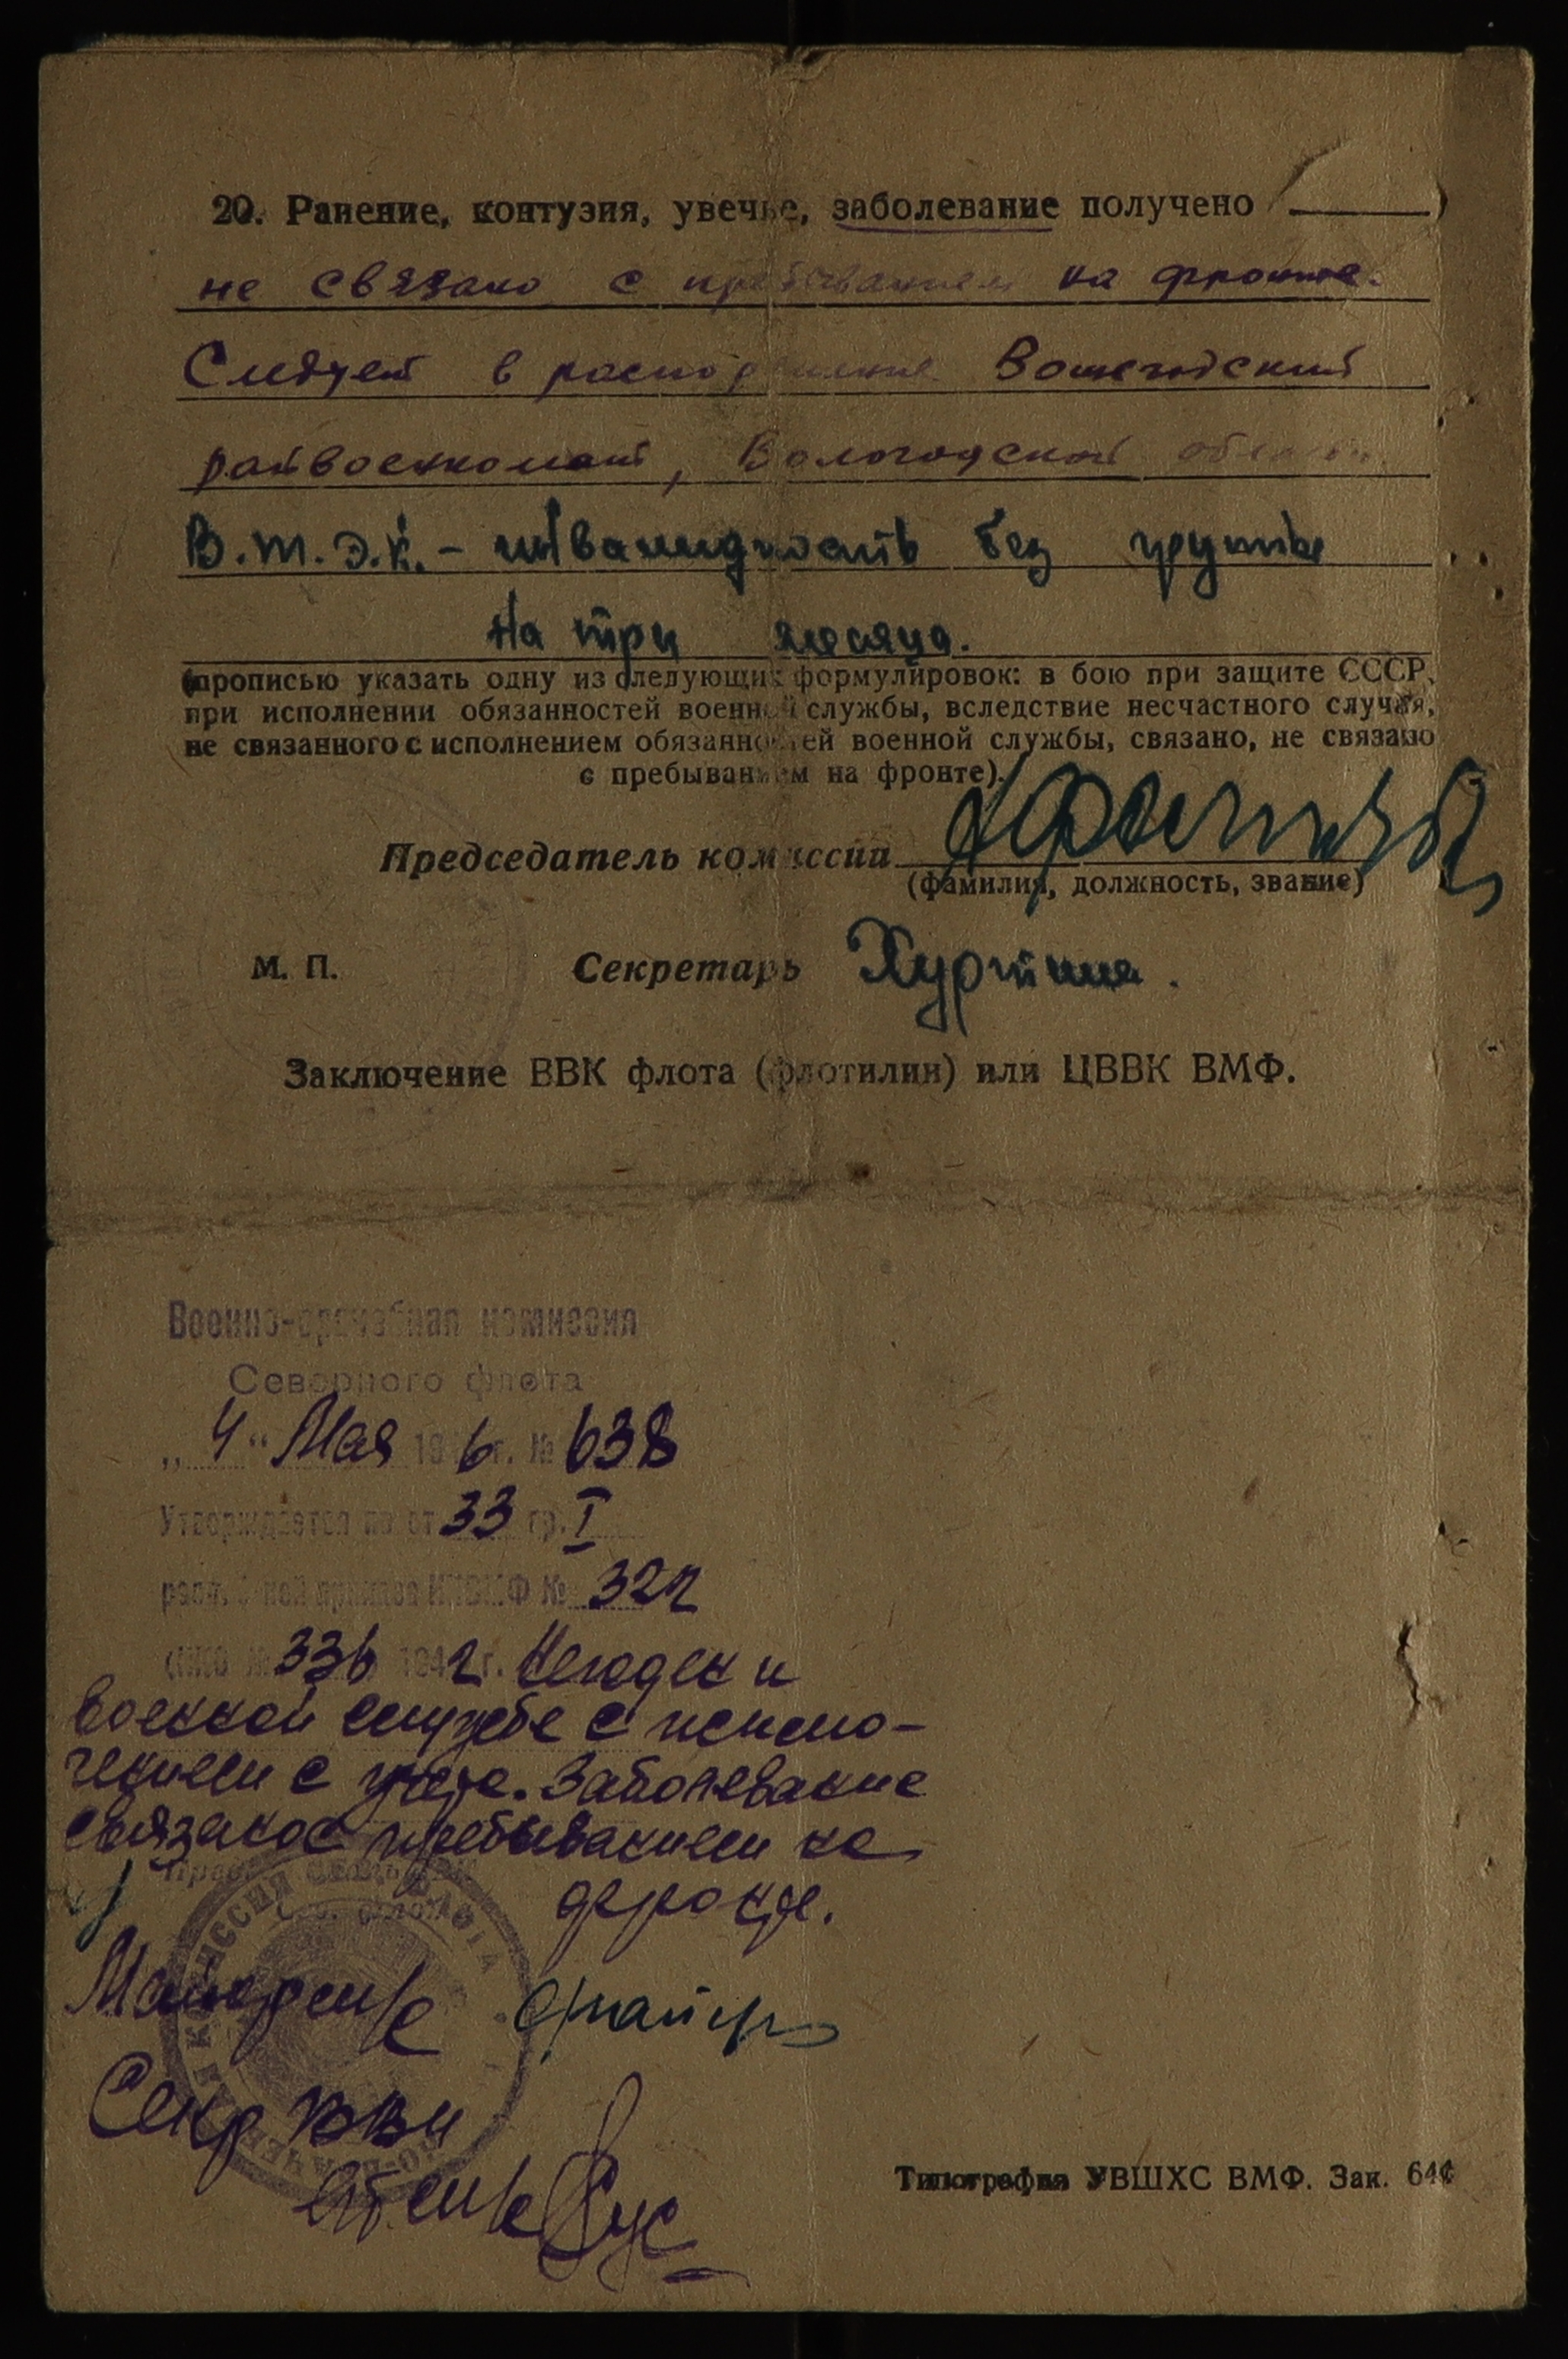 20. Ранение, контузия, увечье, заболевание получено (———)
не связано с пребыванием на фронте.
Следует в распоряжение Вожегодский
райвоенкомат, Вологодской области.
В.т.э.к. - инвалидность без группы
на три месяца.
(прописью указать одну из следующих формулировок: в бою при защите СССР,
при исполнении обязанностей военной службы, вследствие несчастного случая,
не связанного с исполнением обязанностей военной службы, связано, не связано
с пребыванием на фронте).
Председатель комиссии
(фамилия, должность, звание)
М. П. Секретарь
Заключение ВВК флота (флотилии) или ЦВВК ВМФ.
Военно-врачебная комиссия
Северного флота
„4“ Мая 1946 г. № 638
Утверждается по ст 33 гр. I
приказа НКВМФ № 322
(НКО № 336 1942 г. Негоден к
военной службе с исклю-
чением с учета. Заболевание
связано с пребыванием на
фронте.
Майор м/с
Секр ВВК
Лт м/с
Типография УВШХС ВМФ. Зак. 64